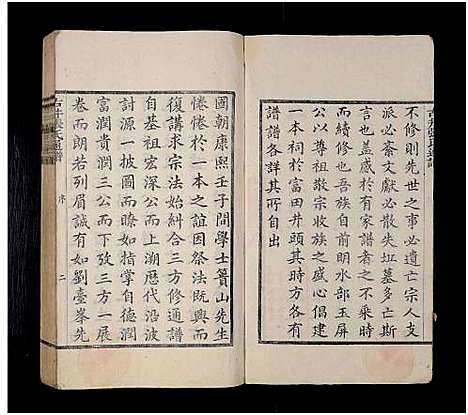 不修則先世之事必遺亡宗人支
派必紊文獻必散失址墓多亡斯
言也盖感於有家譜者之不乘時
而續修也吾族自前明水部玉屏
公以尊祖敬宗收族之盛心俱載
一本祠於富田井頭其間各有各
譜各詳其所自出
國朝康熙壬子間學士簣山先生
惓惓於一本之誼因祭法既興而
復講求宗法始糾合三方修通譜
自基祖宏深公而上溯歷代沿波
討源一披圖而瞭如指掌自德潤
富潤貴潤三公而攷下三方一展
卷而朗若列眉誠有如劉臺峯先
序
二